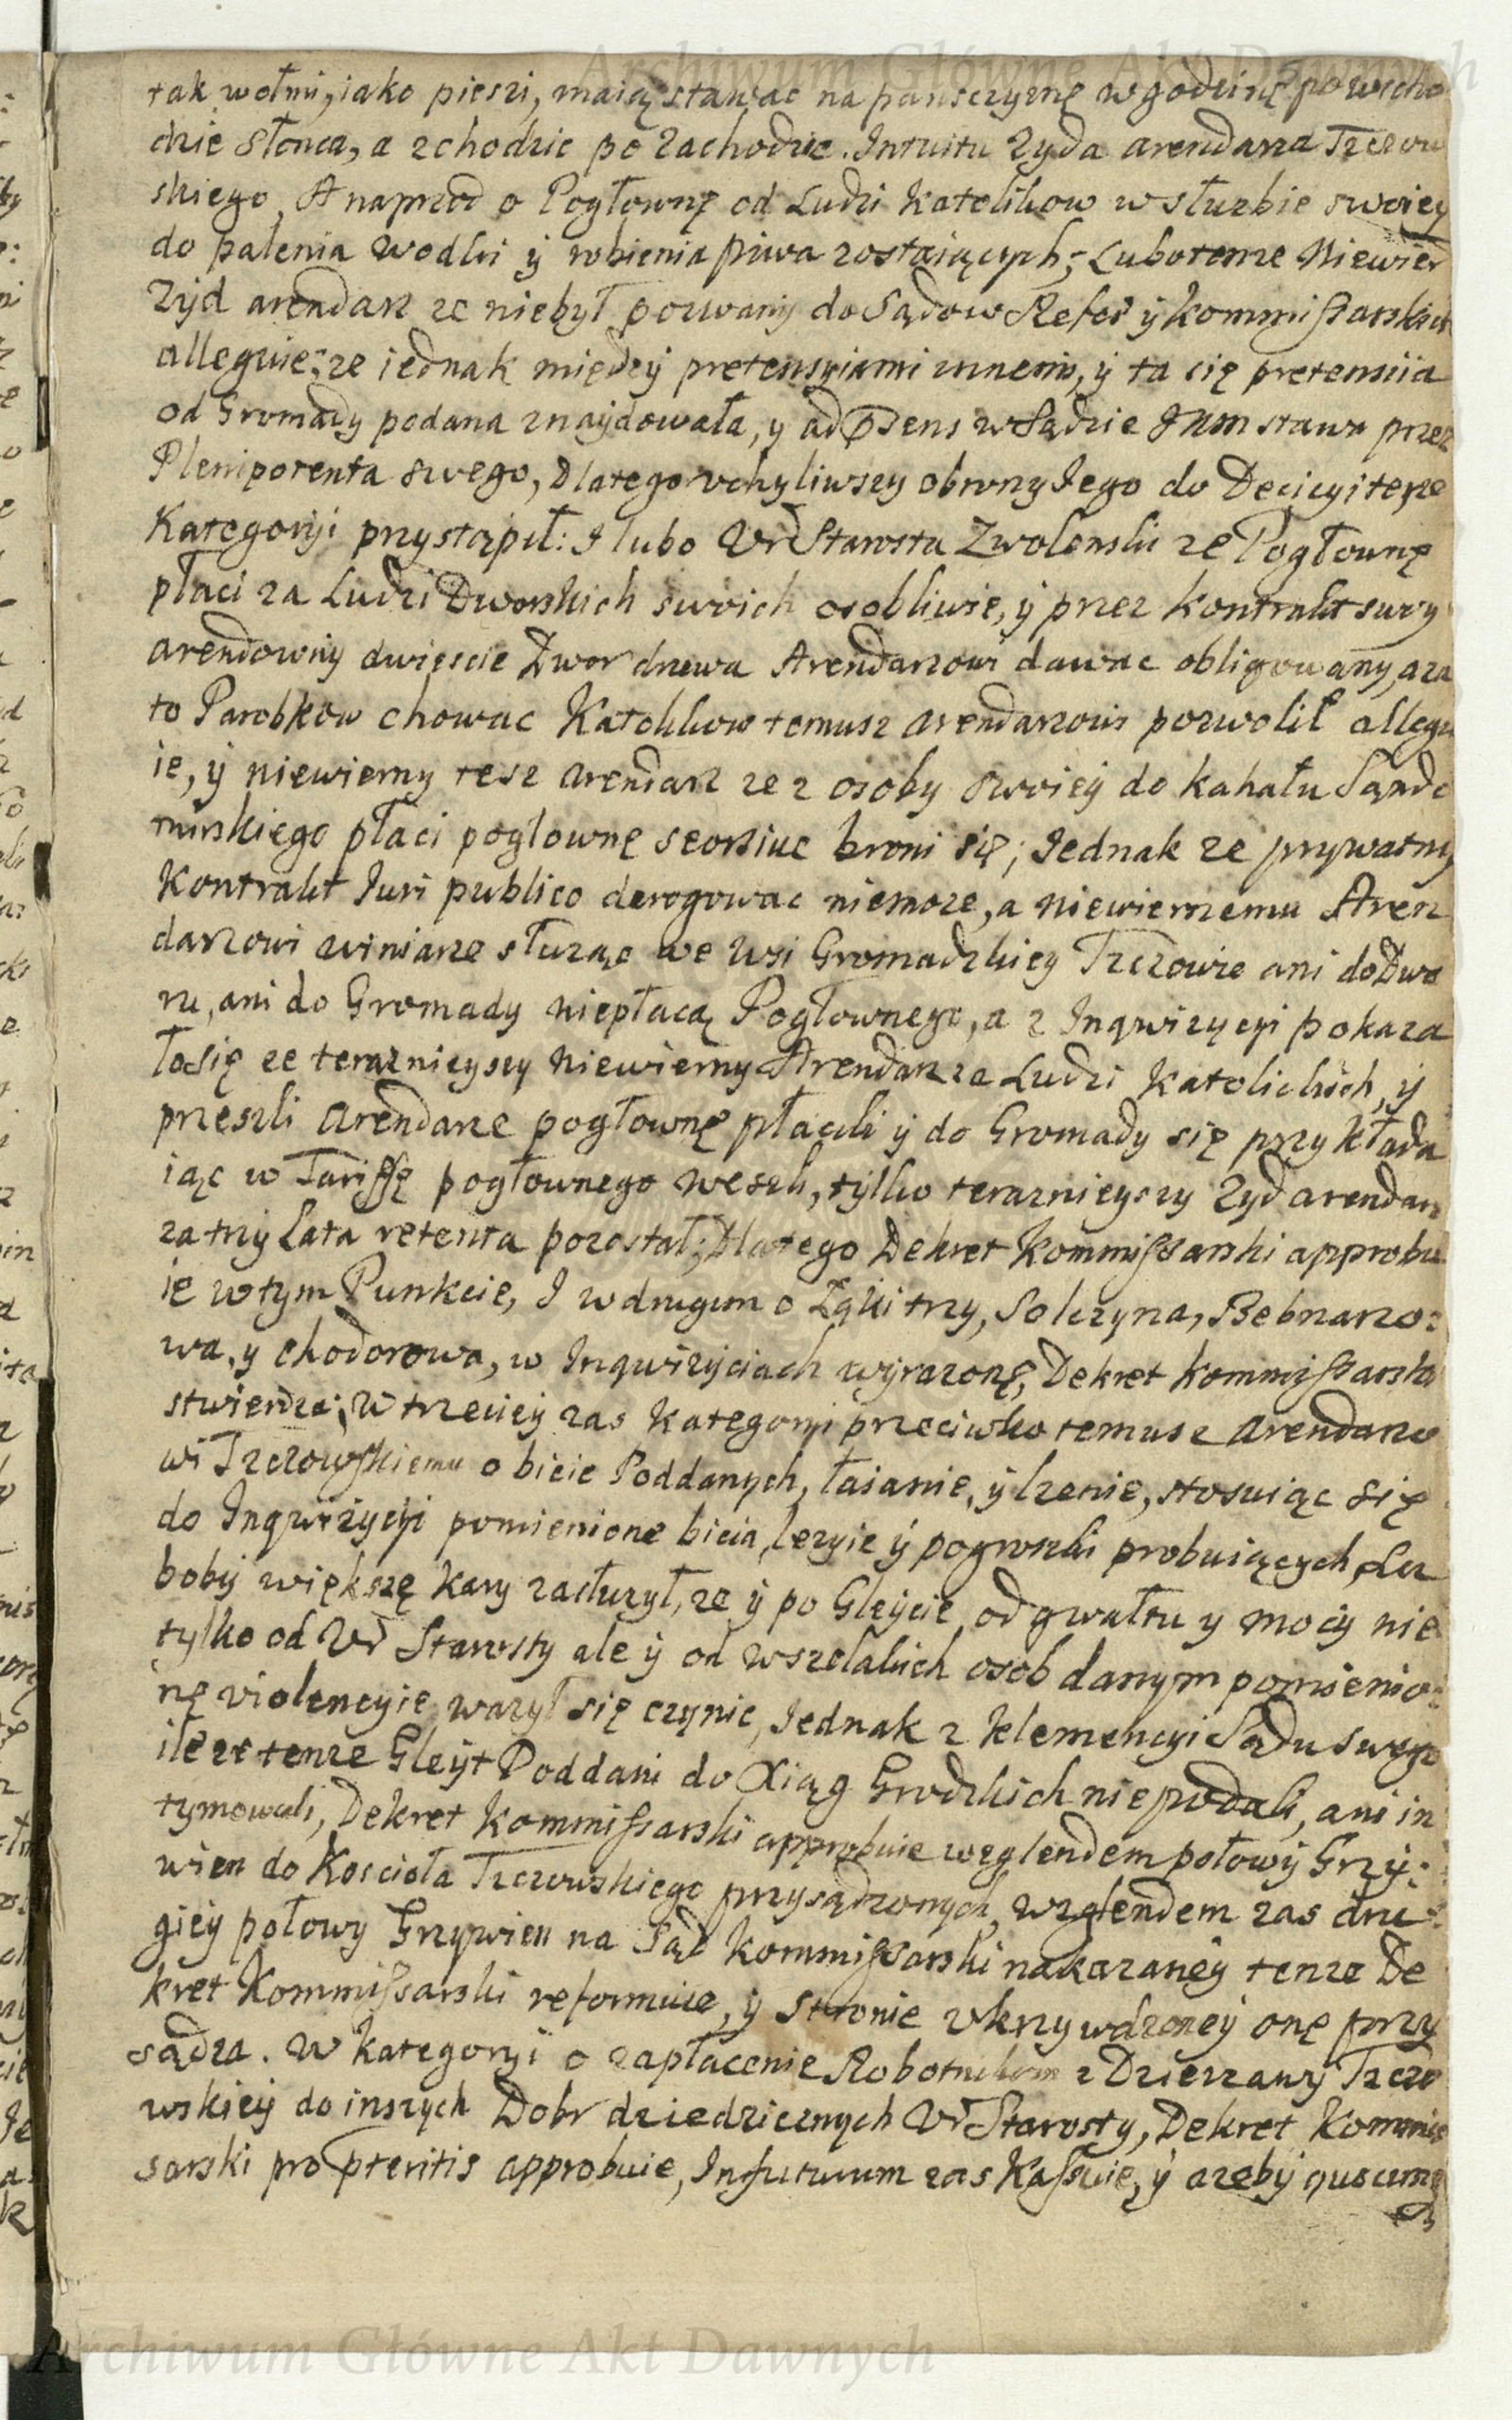 Archiwum Główne Akt Dawnych
tak wołmi, iako pieszi, maią stawac na panszczyznę w godzinę po wscho
dzie słonca, a zchodzic po zachodzie. Intuitu Zyda arendarza Trzcow
skiego, A naprzod o Pogłownę od Ludzi Katolikow w służbie swoiey
do palenia wodki ÿ robienia piwa zostaiących; Lubo tenze Niewier
Zÿd arendarz ze niebył pozwany do Sądow Refer ÿ kommissarskich
alleguie; ze iednak międzÿ pretensyiami innemi, ÿ ta się pretensiia
od Gromady podana znaÿdowała, y ad Psens w Sądzie JKM stawa przez
Plenipotenta swego, Dlatego vchyliwszy obrony Jego do Decizyi teyze
Kategoryi przystąpił: I lubo Vr Starosta Zwolenski ze Pogłownę
płaci za Ludzi Dworskich swoich osobliwie, ÿ przez Kontrakt swoy
arendownÿ dwiescie Dwor drzewa Arendarzowi dawac obligowany, a za
to Parobkow chowac Katolikow temusz arendarzowi pozwolił allegu
ie, ÿ niewierny tesz arendarz ze z osoby swoiey do kahału Sando
mirskiego płaci pogłownę seorsive broni się; Jednak ze prywatny
Kontrakt Iuri publico derogowac niemoze, a niewiernemu Aren
darzowi winiarze służąc we Wsi Gromadzkiey Trzczowie ani do Dwo
ru, ani do Gromady niepłacą Pogłownego, a z Inqwizycyi pokaza
ło się ze teraznieyszy niewierny Arendarz za Ludzi Katolickich, ÿ
przeszli arendarze pogłownę płacili ÿ do Gromady się przykłada
iąc w Tariffę pogłownego weszli, tÿlko teraznieyszy Zyd arendarz
za trzÿ Lata retenta pozostał; Dlatego Dekret Kommissarski approbu
ie w tym Punkcie, I w drugim o Łąki trzy, Solczyna, Bebnarzo:
wa, y chodorowa, w Inqwizyciach wÿrazonę, Dekret Kommissarski
stwierdza; W trzeciey zas Kategoryi przeciwko temusz arendarzo
wi Trzczowskiemu o bicie Poddanych, łaianie, ÿ lzenie, stosuiąc się
do Inqwizycyi pomienione bicia, lezyie ÿ pogrozki probuiących, Lu
boby większę Kary zasłuzył, ze ÿ po Gleÿcie od gwałtu y mocy nie
tylko od Vr Starosty ale ÿ od wszelakich osob danym pomienio:
nę violencyie wazył się czynic, Jednak z klemencyi Sądu swego
ile ze tenze Gleÿt Poddani do Xiąg Grodzkich niepodali, ani in
tymowali, Dekret Kommissarski approbuie względem połowÿ Grzy:
wien do Koscioła Trzczowskiego przysądzonych, względem zas dru:
giey połowy Grzywien na Sąd Kommissarski nakazaneÿ tenze De
kret Kommissarski reformuie, ÿ stronie vkrzywdzoney onę przy
sądza. W kategoryi o zapłacenie Robotnikom z Dzierzawy Trzczo
wskieÿ do inszych Dobr dziedzicznych Vr Starosty, Dekret Kommis
sarski pro pteritis approbuie, In futurum zas Kassuie, ÿ azeby quocumq
Archiwum Główne Akt Dawnych